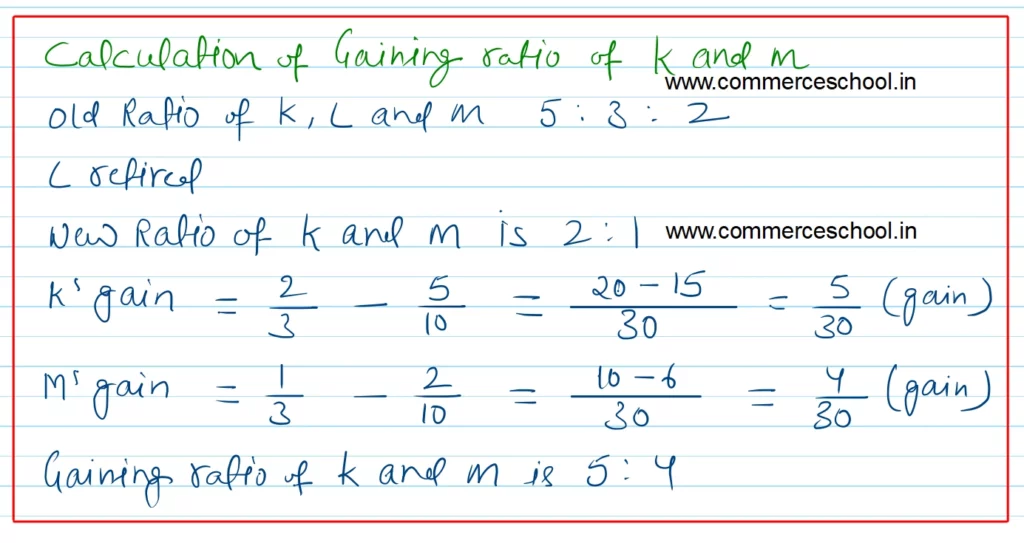 Calculation of Gaining ratio of K and M
www.commerceschool.in
Old Ratio of K, L and M 5 : 3 : 2
L retired
New Ratio of K and M is 2 : 1 www.commerceschool.in
K's gain = 2/3 - 5/10 = 20 - 15/30 = 5/30 (gain)
M's gain = 1/3 - 2/10 = 10 - 6/30 = 4/30 (gain)
Gaining ratio of K and M is 5 : 4